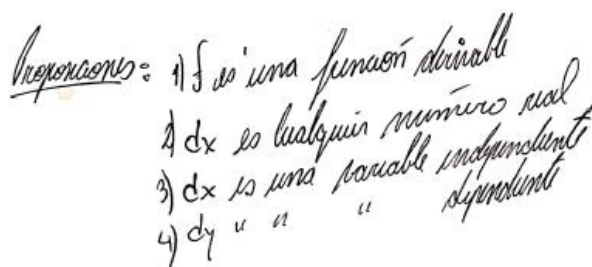 Proporciones: 1) f es una función derivable
2) dx es cualquier número real
3) dx es una variable independiente
4) dy " " " dependiente